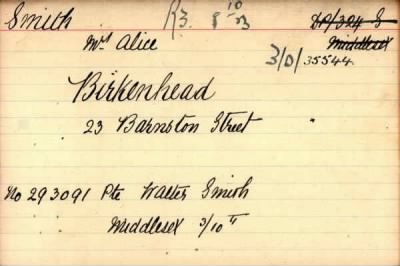 Smith R3. 8 10/23 DP/324 S
Mrs Alice Middlesex
3/D/35544
Birkenhead
23 Barnston Street "
No 293091 Pte Walter Smith
Middlesex 3/10th